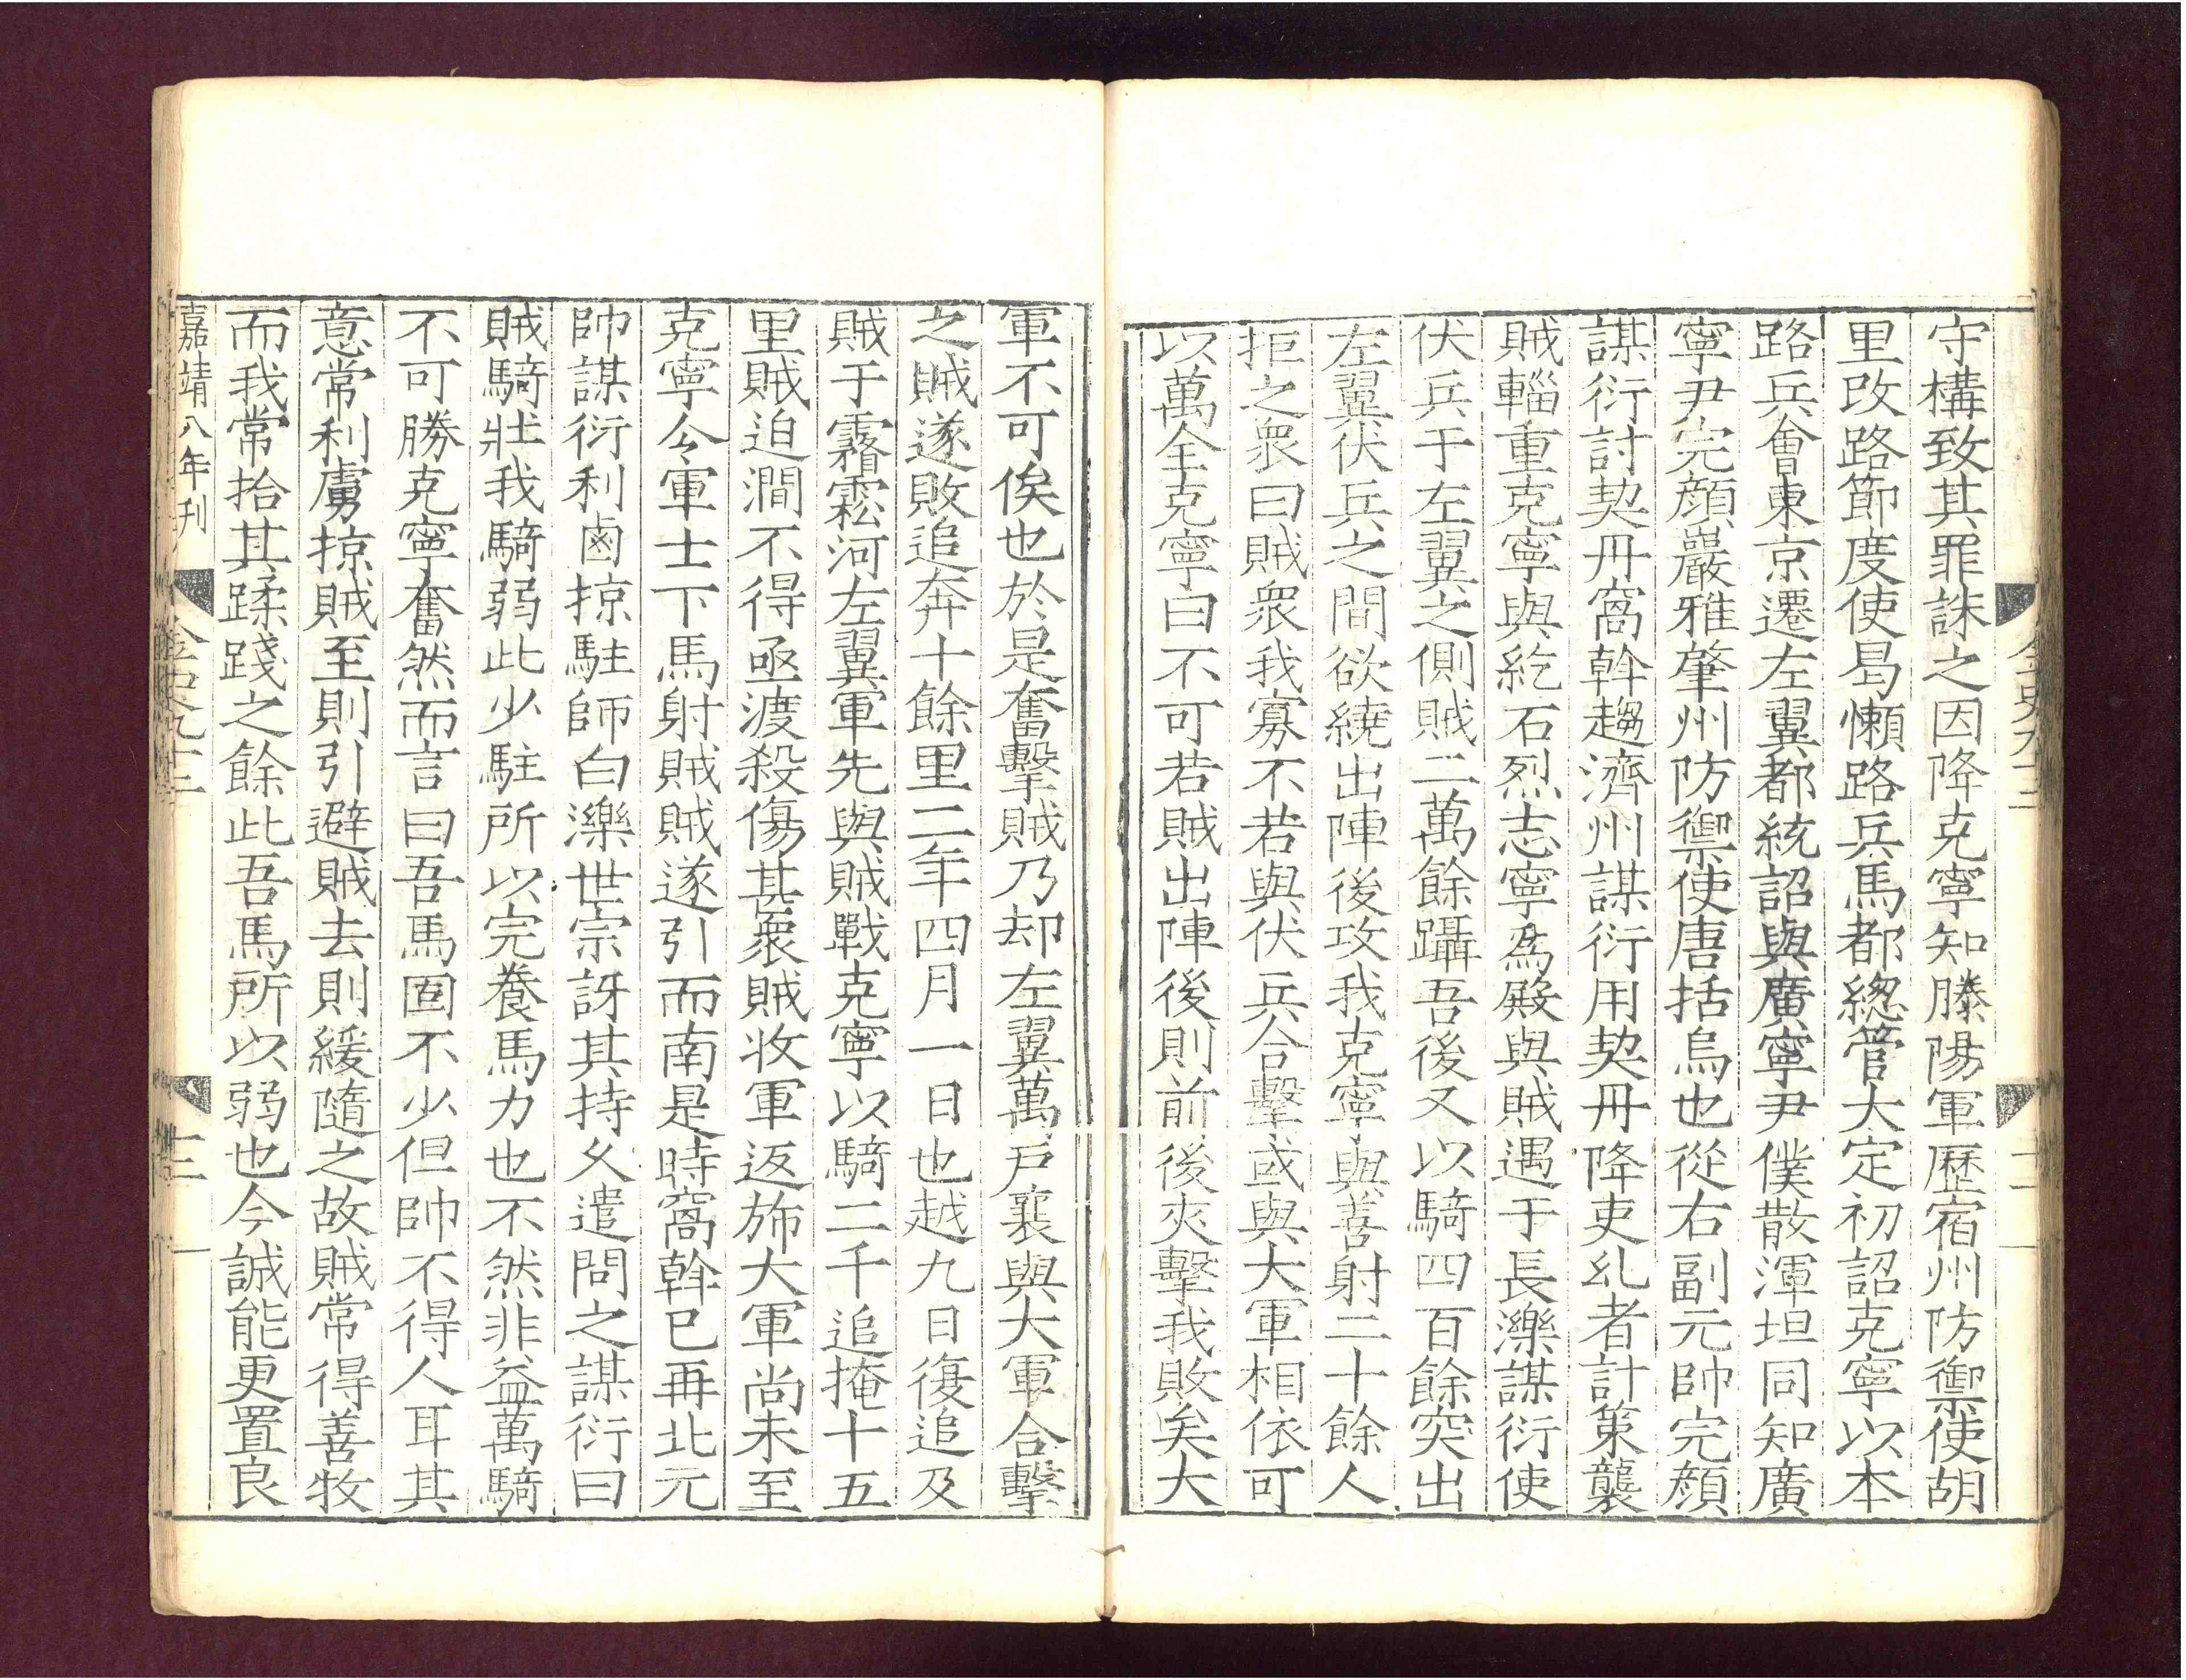 守構致其罪誅之因降克寧知滕陽軍歷宿州防禦使胡
里改路節度使曷懶路兵馬都緫管大定初詔克寧以本
路兵會東京遷左翼都統詔與廣寧尹僕散渾坦同知廣
寧尹完顔巖雅肇州防禦使唐括烏也從右副元帥完顔
謀衍討契丹窩斡趨濟州謀衍用契丹降吏乣者計策襲
賊輜重克寧與紇石烈志寧爲殿與賊遇于長濼謀衍使
伏兵于左翼之側賊二萬餘躡吾後又以騎四百餘突出
左翼伏兵之間欲繞出陣後攻我克寧與善射二十餘人
拒之衆曰賊衆我寡不若與伏兵合擊或與大軍相依可
以萬全克寧曰不可若賊出陣後則前後夾擊我敗矣大
軍不可俟也於是奮擊賊乃却左翼萬戸襄與大軍合擊
之賊遂敗追奔十餘里二年四月一日也越九日復追及
賊于霿㶊河左翼軍先與賊戰克寧以騎二千追掩十五
里賊迫澗不得亟渡殺傷甚衆賊收軍返斾大軍尚未至
克寧令軍士下馬射賊賊遂引而南是時窩斡已再北元
帥謀衍利鹵掠駐師白濼世宗訝其持乆遣問之謀衍曰
賊騎壯我騎弱此少駐所以完養馬力也不然非益萬騎
不可勝克寧奮然而言曰吾馬固不少但帥不得人耳其
意常利虜掠賊至則引避賊去則緩隨之故賊常得善牧
而我常拾其蹂踐之餘此吾馬所以弱也今誠能更置良
嘉靖八年刊
金史九十二
三